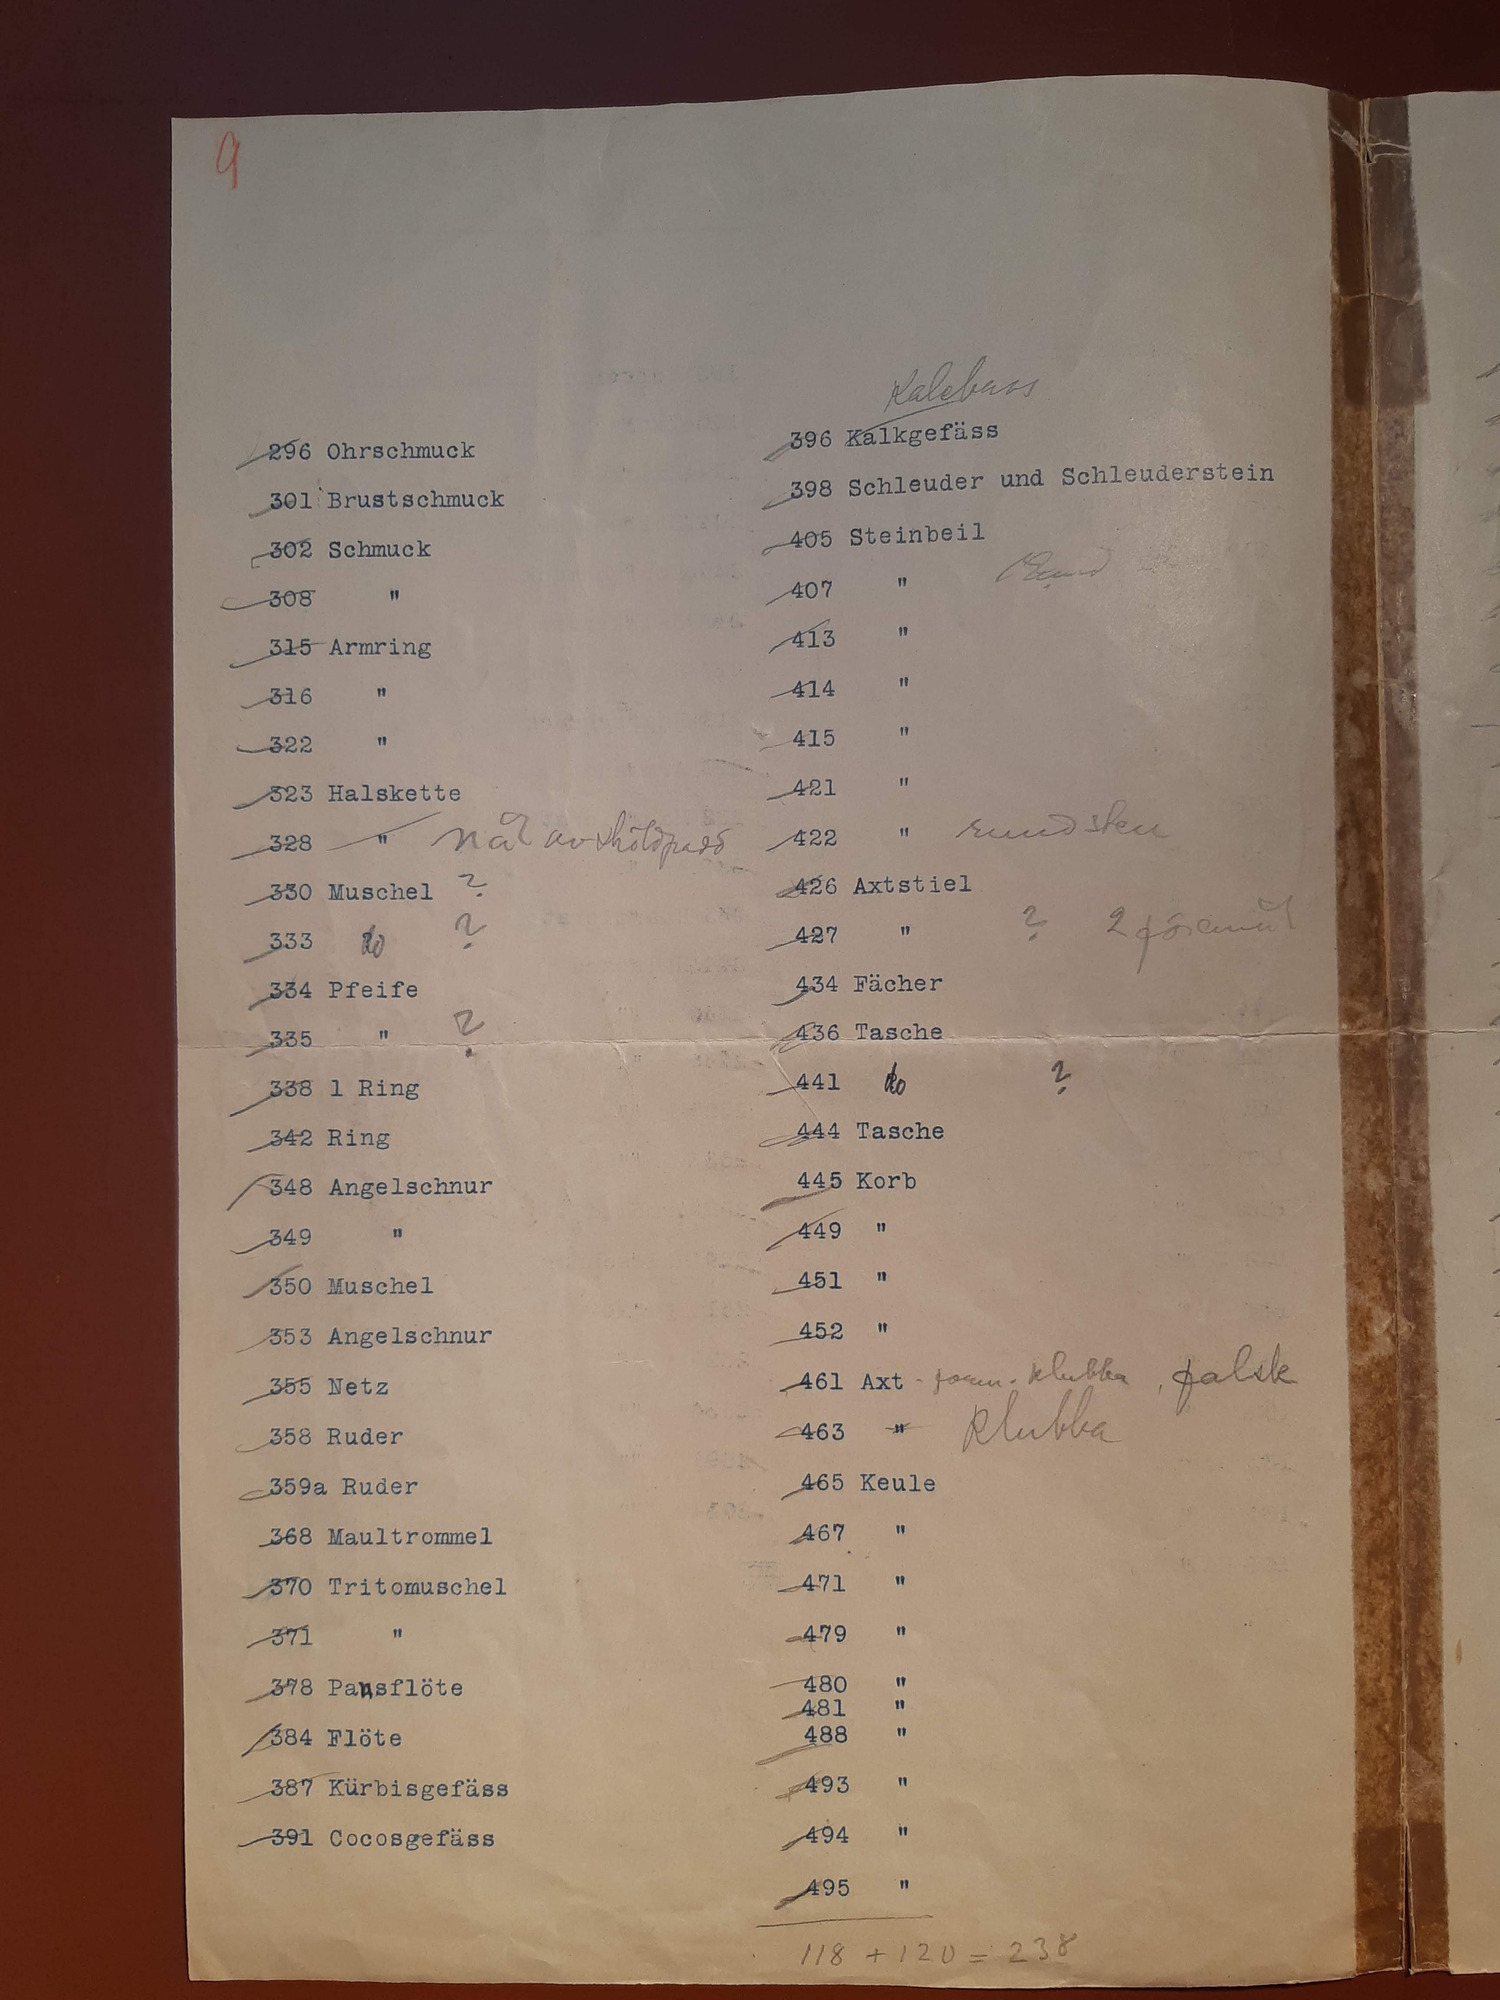 9
296 Ohrschmuck
301 Brustschmuck
302 Schmuck
308 "
315 Armring
316 "
322 "
323 Halskette
328 " nål av
330 Muschel ?
333 do ?
334 Pfeife
335 " ?
338 1 Ring
342 Ring
348 Angelschnur
349 "
350 Muschel
353 Angelschnur
355 Netz
358 Ruder
359a Ruder
368 Maultrommel
370 Tritomuschel
371 "
378 Pansflöte
384 Flöte
387 Kürbisgefäss
391 Cocosgefäss
Kalebass
396 Kalkgefäss
398 Schleuder und Schleuderstein
405 Steinbeil
407 "
413 "
414 "
415 "
421 "
422 " rund sten
426 Axtstiel
427 " ? 2 föremål
434 Fächer
436 Tasche
441 do ?
444 Tasche
445 Korb
449 "
451 "
452 "
461 Axt - form. klubba, falsk
463 " Klubba
465 Keule
467 "
471 "
479 "
480 "
481 "
488 "
493 "
494 "
495 "
118 + 120 = 238